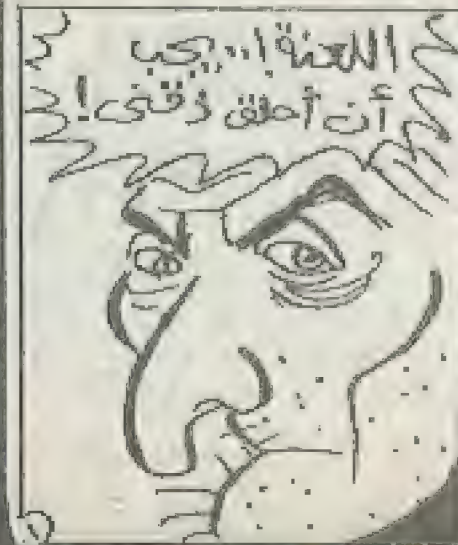 اللعنة !.. يجب
أن أحلق ذقنى !